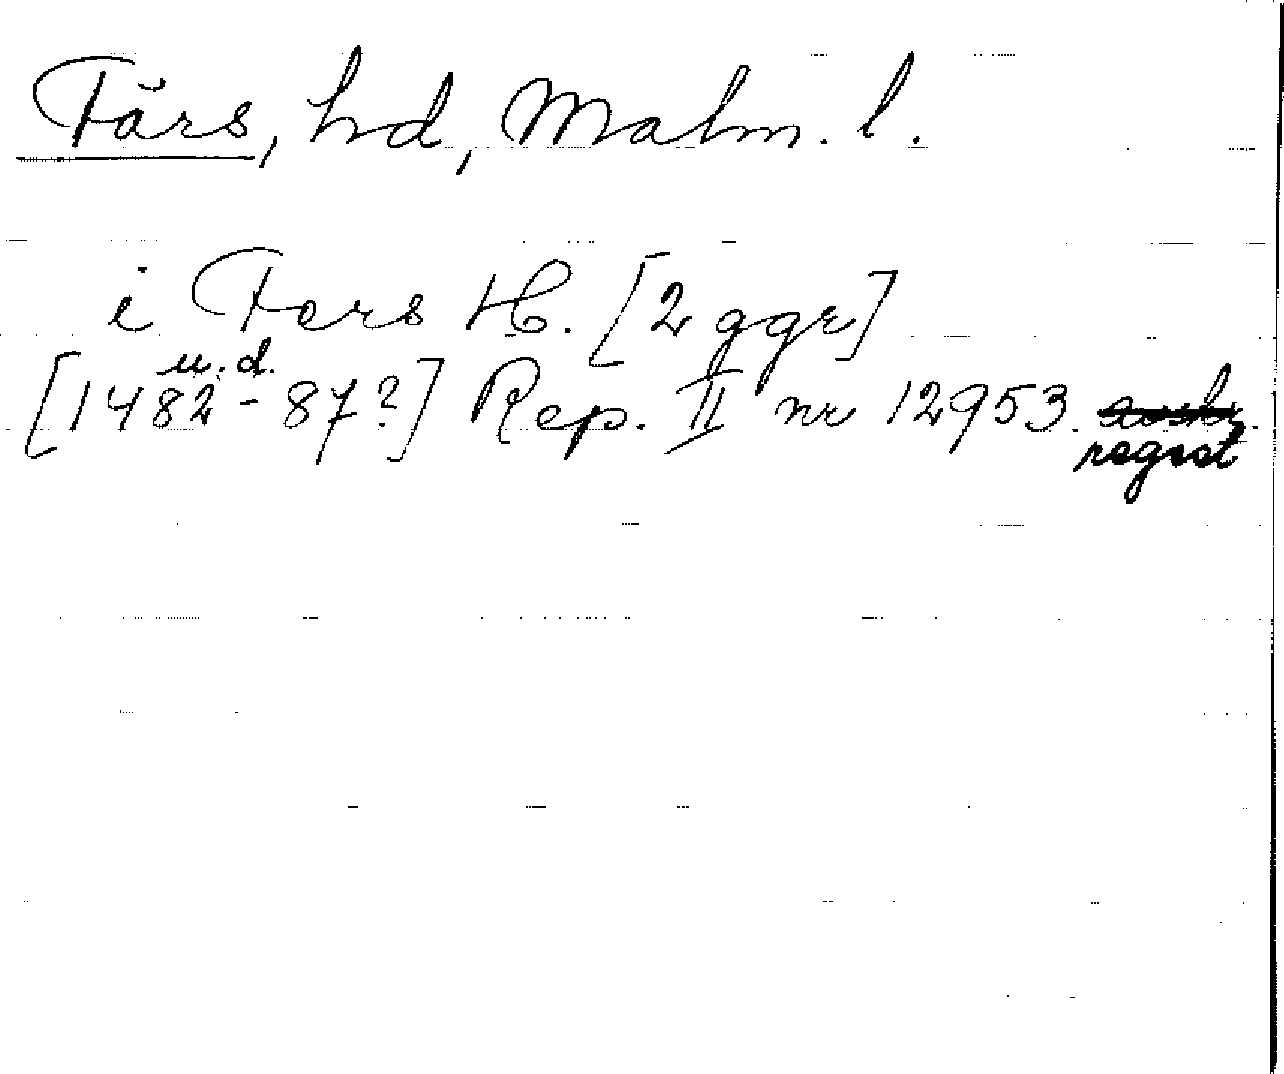 Färs, hd, Malm. l.
i Fers H. [2 ggr]
u. d.
[1482-87?] Rep. II nr 12953. avskr.
regest